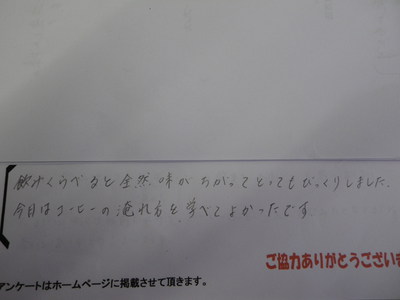 飲みくらべると全然味がちがってとってもびっくりしました。
今日はコーヒーの淹れ方を学べてよかったです
ご協力ありがとうござい
アンケートはホームページに掲載させて頂きます。